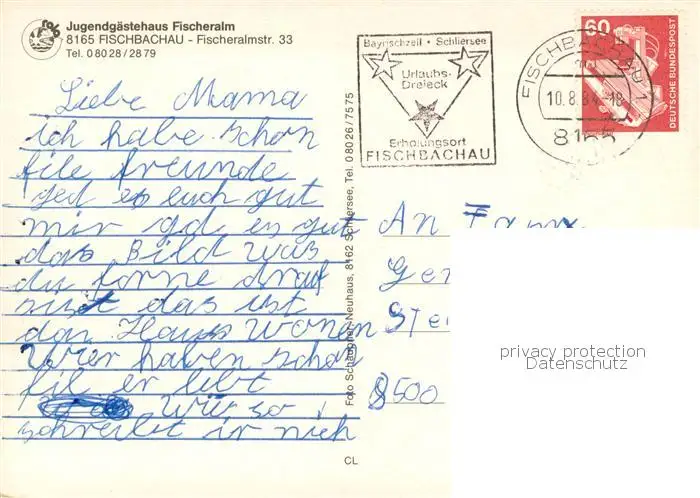 Jugendgästehaus Fischeralm
8165 FISCHBACHAU - Fischeralmstr. 33
Tel. 0 80 28 / 28 79
Bayrischzell • Schliersee
Urlaubs-
Dreieck
Erholungsort
FISCHBACHAU
FISCHBACHAU 1
10.8.84-18
8165
60
DEUTSCHE BUNDESPOST
Liebe Mama
ich habe schon
file freunde
ged es euch gut
mir gd es gut
das Bild was
du forne drauf
sist das ist
das Haus wonen
Wier haben schon
fil er lebt
wiso
schreibt ir nich
Foto Schaupner, Neuhaus, 8162 Schliersee, Tel. 0 80 26 / 75 75
An Fam.
Ge
Ste
8500
privacy protection
Datenschutz
CL